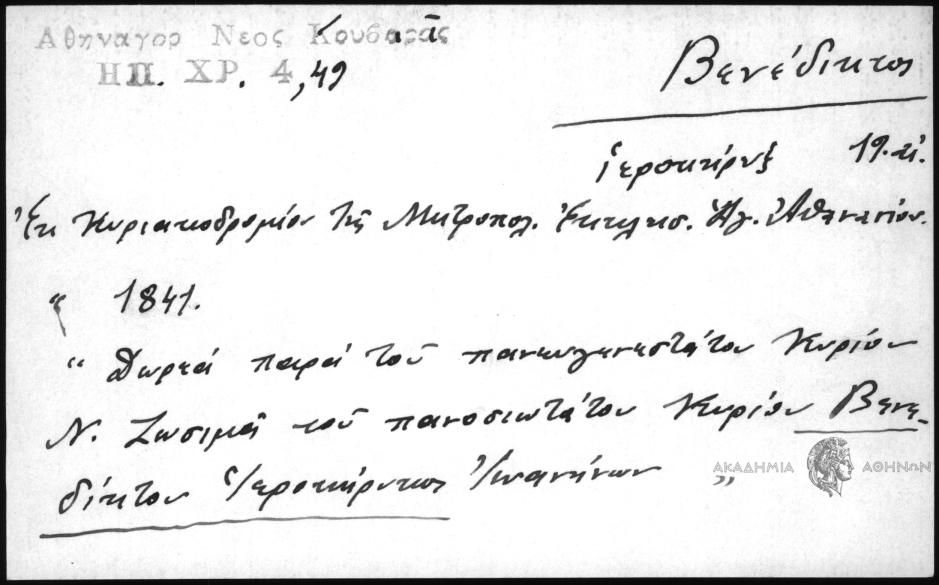 Αθηναγορ Νεος Κουβαρᾶς
ΗΠ. ΧΡ. 4, 49
Βενέδικτος
ἱεροκήρυξ 19. αἰ.
Ἐκ Κυριακοδρομίου τῆς Μητροπολ. Ἐκκλησ. Ἁγ. Ἀθανασίου.
" 1841.
" Δωρεά παρά τοῦ πανευγενεστάτου Κυρίου
Ν. Ζωσιμᾶ τοῦ πανοσιωτάτου Κυρίου Βενε-
δίκτου Ἱεροκήρυκος Ἰωαννίνων "
ΑΚΑΔΗΜΙΑ ΑΘΗΝΩΝ